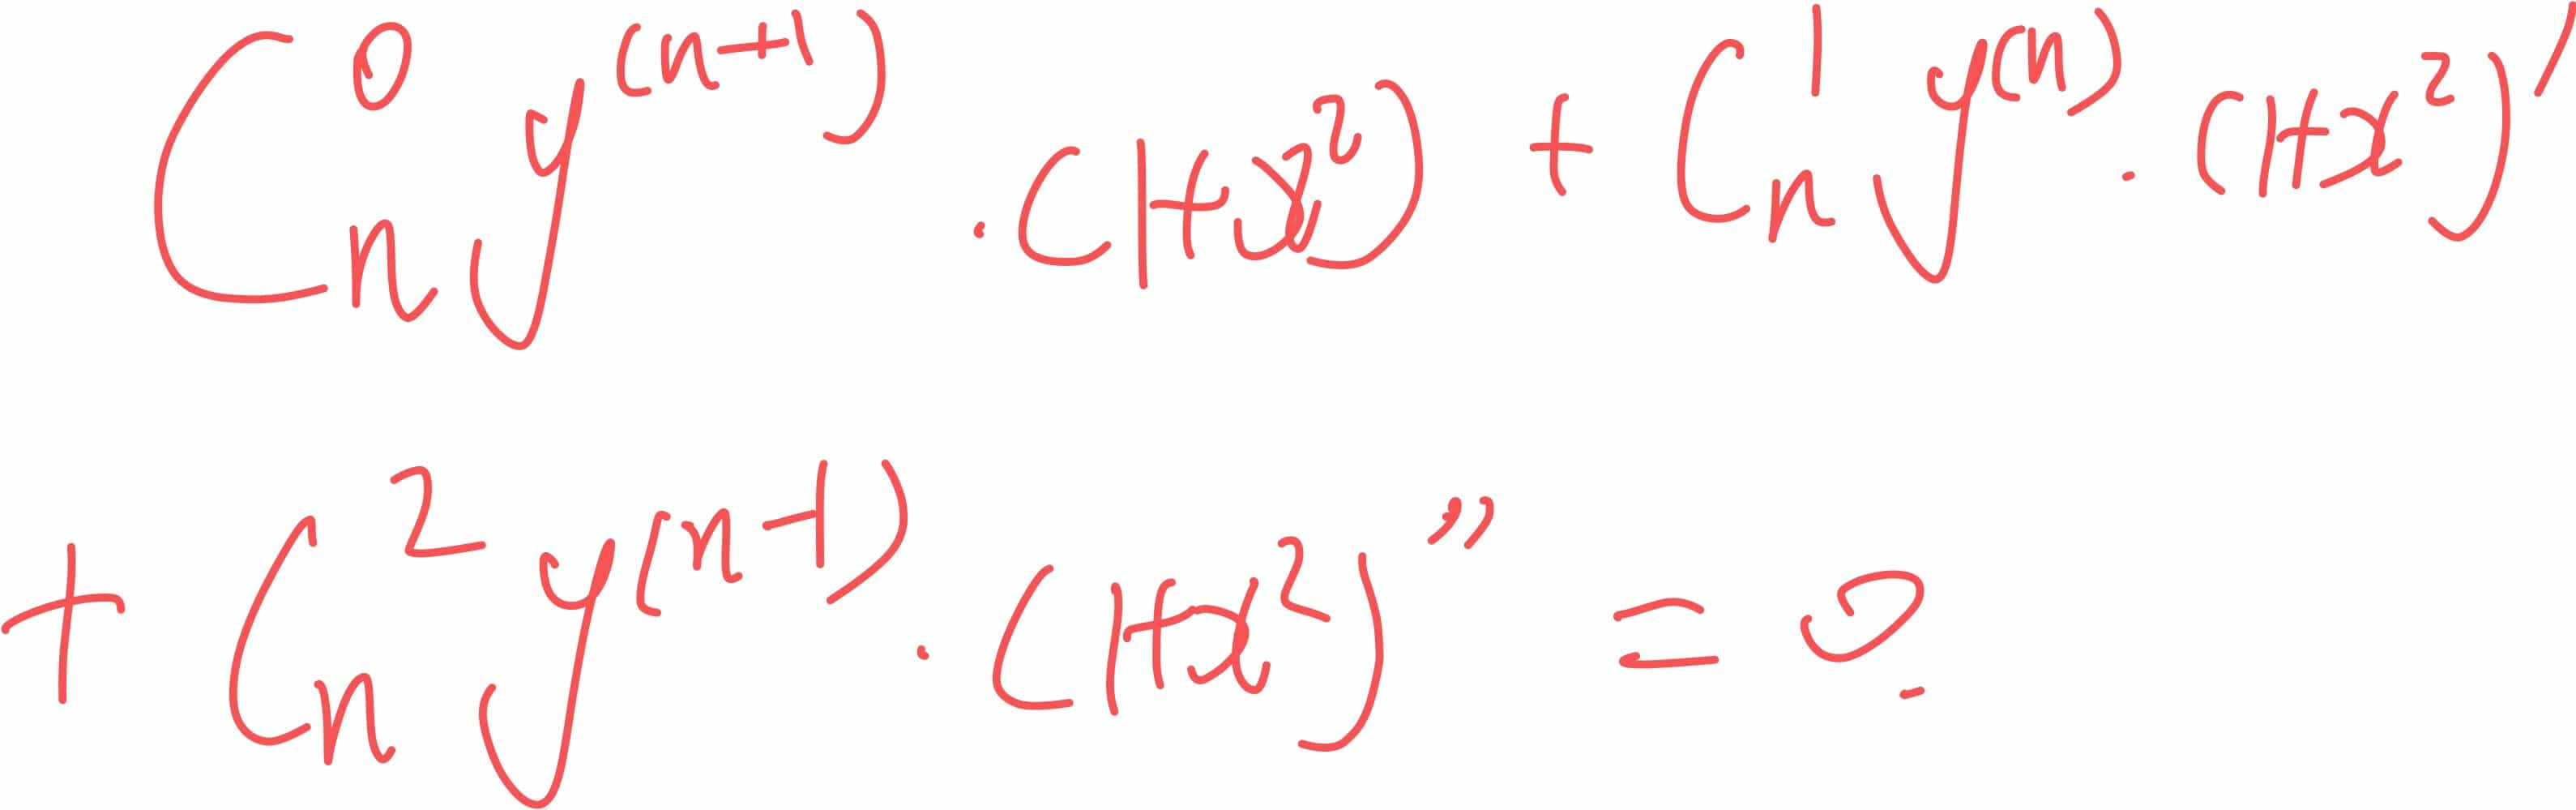 $C_n^0 y^{(n+1)} \cdot (1+x^2) + C_n^1 y^{(n)} \cdot (1+x^2)'$
$+ C_n^2 y^{(n-1)} \cdot (1+x^2)'' = ?$